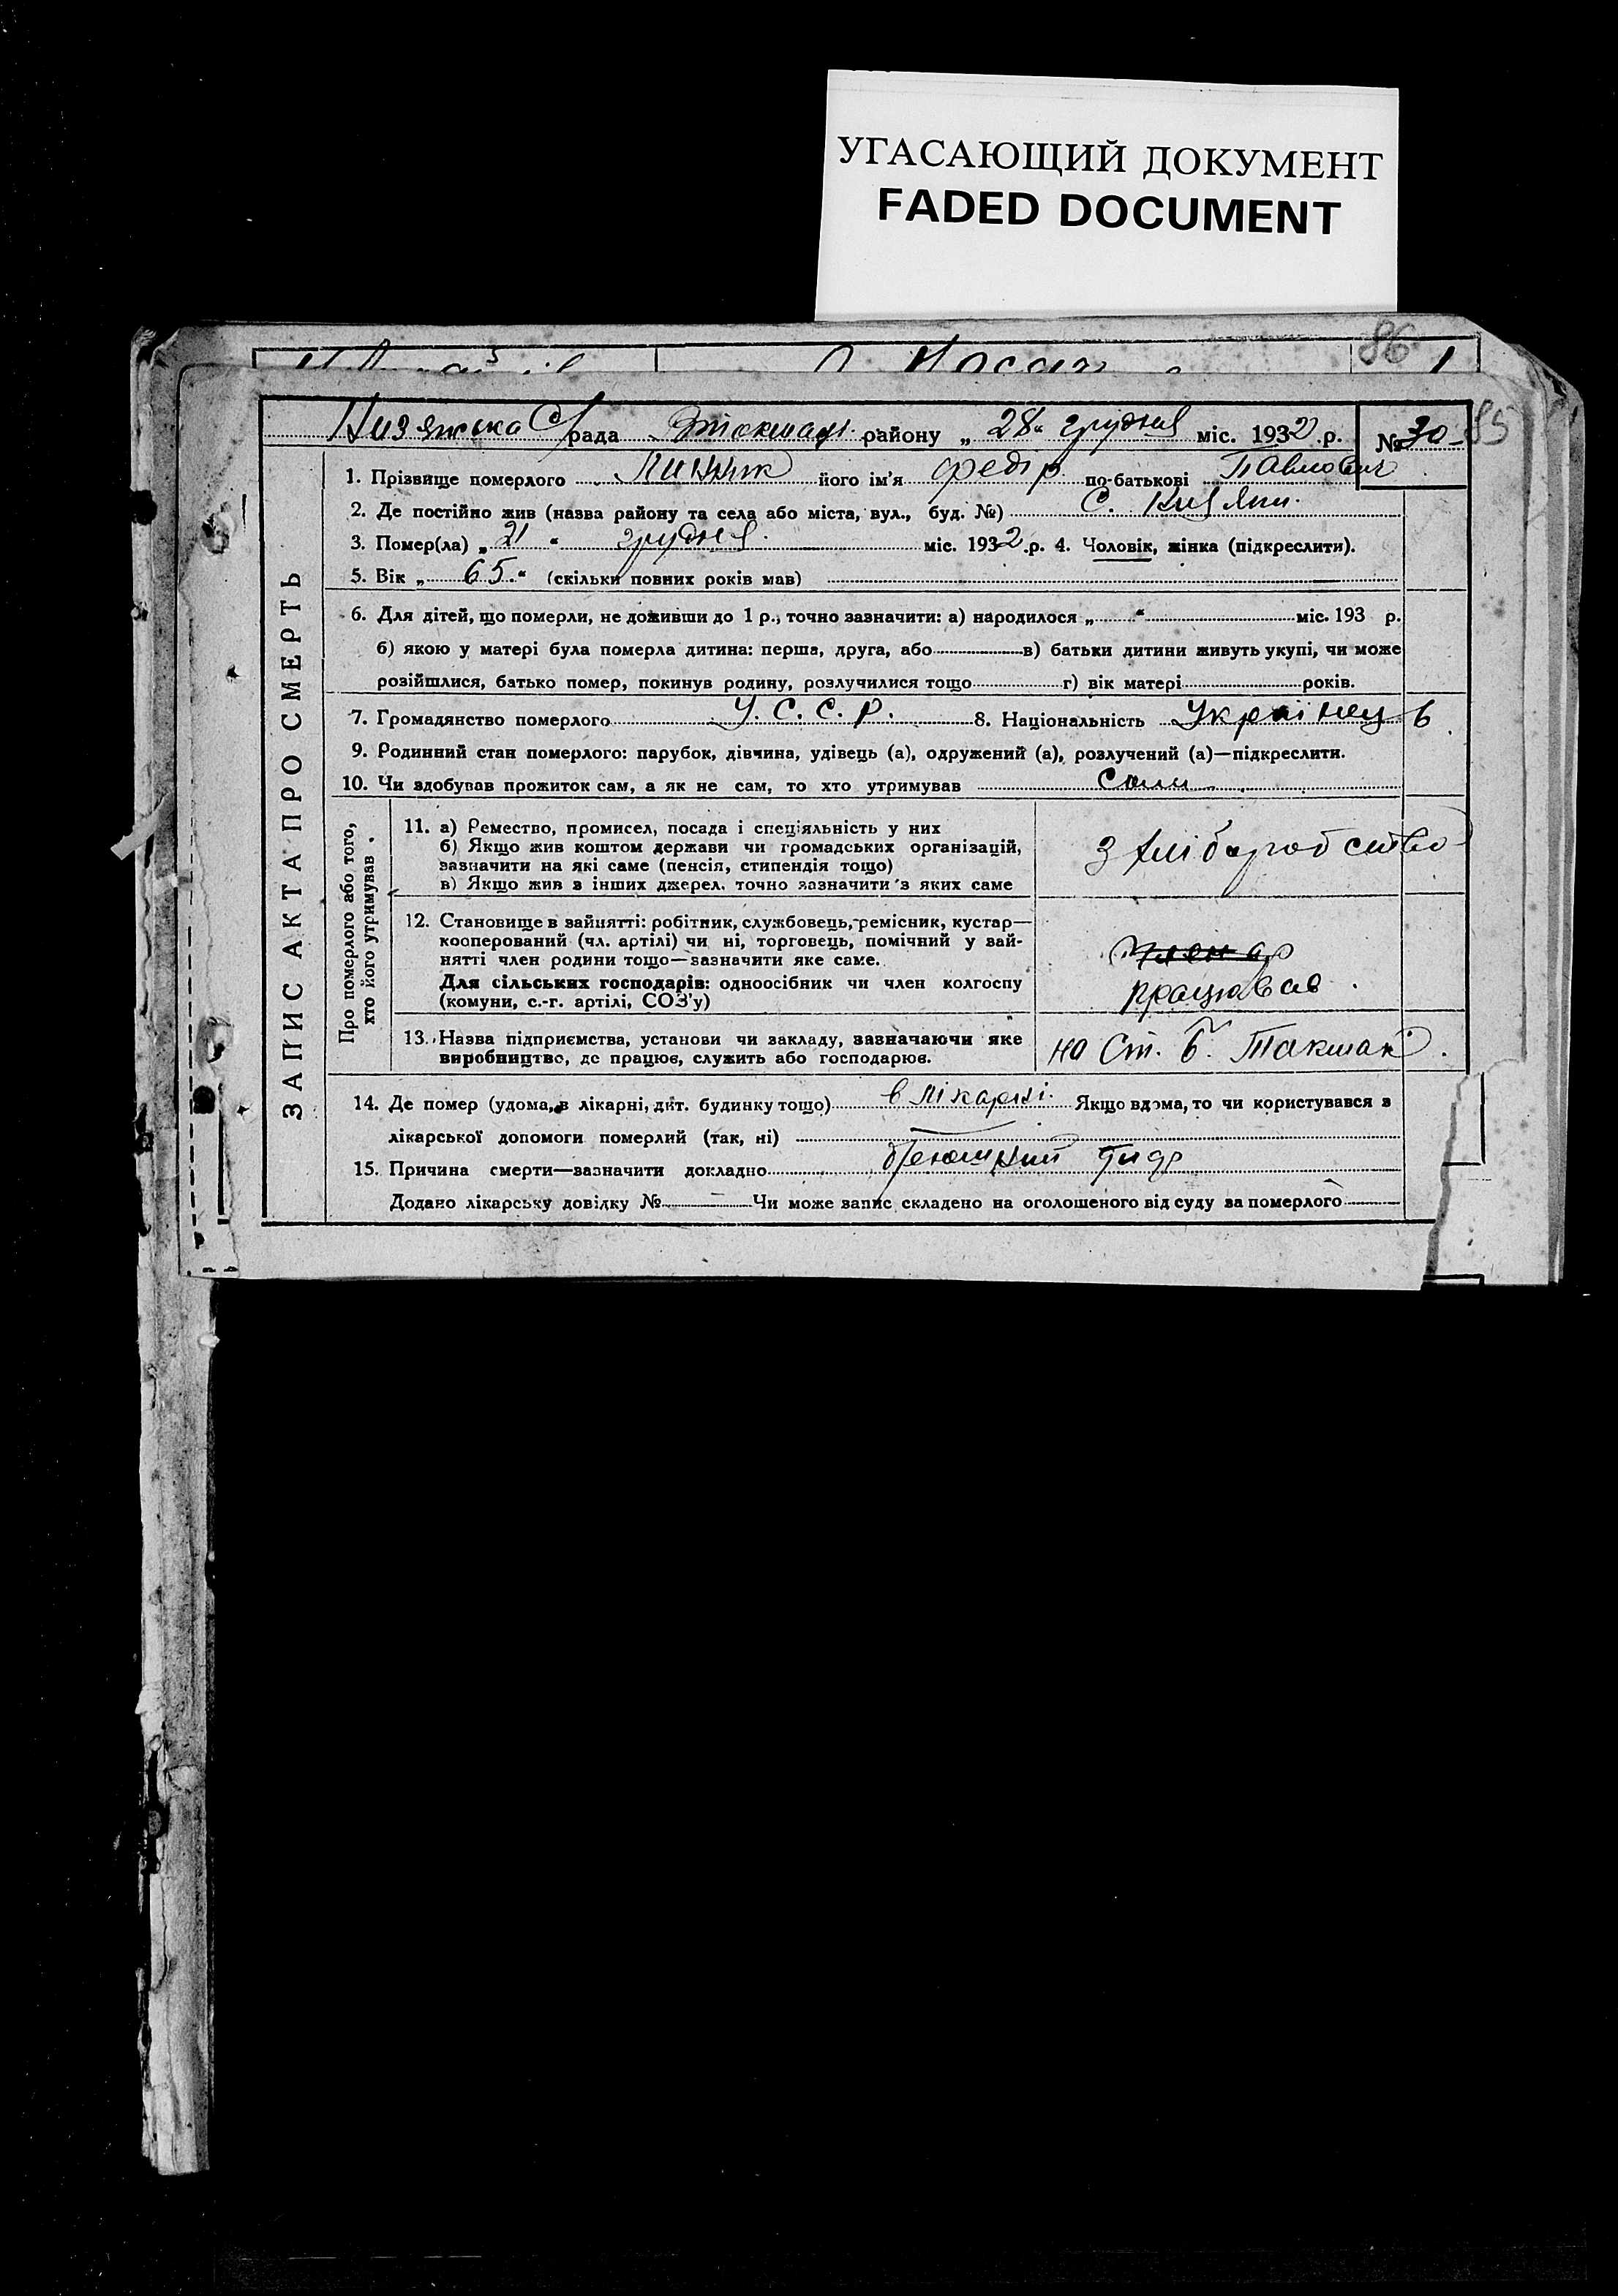 УГАСАЮЩИЙ ДОКУМЕНТ
FADED DOCUMENT
86
85
рада району „ 28 “ грудня міс. 1932 р. № 30
ЗАПИС АКТА ПРО СМЕРТЬ
1. Прізвище померлого його ім'я Федір по-батькові Павлович
2. Де постійно жив (назва району та села або міста, вул., буд. №) С.
3. Помер(ла) „ 21 “ грудня міс. 1932 р. 4. Чоловік, жінка (підкреслити).
5. Вік „ 65 “ (скільки повних років мав)
6. Для дітей, що померли, не доживши до 1 р., точно зазначити: а) народилося „ “ міс. 193 р.
б) якою у матері була померла дитина: перша, друга, або в) батьки дитини живуть укупі, чи може
розійшлися, батько помер, покинув родину, розлучилися тощо г) вік матері років.
7. Громадянство померлого У. С. С. Р. 8. Національність Українець
9. Родинний стан померлого: парубок, дівчина, удівець (а), одружений (а), розлучений (а)—підкреслити.
10. Чи здобував прожиток сам, а як не сам, то хто утримував Сам
Про померлого або того,
хто його утримував
11. а) Ремество, промисел, посада і спеціяльність у них
б) Якщо жив коштом держави чи громадських організацій,
зазначити на які саме (пенсія, стипендія тощо)
в) Якщо жив з інших джерел, точно зазначити з яких саме
З хліборобство
12. Становище в зайнятті: робітник, службовець, ремісник, кустар—
кооперований (чл. артілі) чи ні, торговець, помічний у зай-
нятті член родини тощо—зазначити яке саме.
Для сільських господарів: одноосібник чи член колгоспу
(комуни, с.-г. артілі, СОЗ'у)
працював
13. Назва підприємства, установи чи закладу, зазначаючи яке
виробництво, де працює, служить або господарює.
на Ст. Б. Токмак
14. Де помер (удома, в лікарні, дит. будинку тощо) в лікарні. Якщо вдома, то чи користувався з
лікарської допомоги померлий (так, ні)
15. Причина смерти—зазначити докладно
Додано лікарську довідку № — Чи може запис складено на оголошеного від суду за померлого